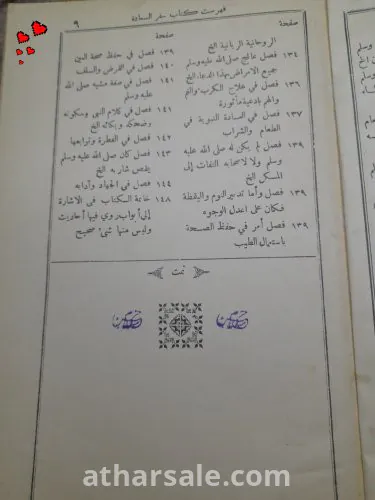 فهرست كتاب سفر السعادة
٩
صحيفة
الروحانية الربانية الخ
١٣٤ فصل عالج صلى الله عليه وسلم
جميع الامراض بهذا الدعاء الخ
١٣٦ فصل في علاج الكرب والهم
والغم بادعية مأثورة
١٣٧ فصل في العادة النبوية في
الطعام والشراب
١٣٩ فصل لم يكن له صلى الله عليه
وسلم ولا لاصحابه التفات إلى
المسكن الخ
١٣٩ فصل وأما تدبير النوم واليقظة
فكان على اعدل الوجوه
١٣٩ فصل أمر في حفظ الصحة
باستعمال الطيب
صحيفة
١٣٩ فصل في حفظ صحة العين
١٤٠ فصل في القرض والسلف
١٤١ فصل في صفة مشيه صلى الله
عليه وسلم
١٤١ فصل في كلام النبي وسكوته
وضحكه وبكائه الخ
١٤٢ فصل في الفطرة وتوابعها
١٤٣ فصل كان صلى الله عليه وسلم
يقص شاربه الخ
١٤٤ فصل في الجهاد وآدابه
١٤٨ خاتمة الكتاب في الاشارة
إلى أبواب روي فيها أحاديث
وليس منها شئ صحيح
تمت
atharsale.com